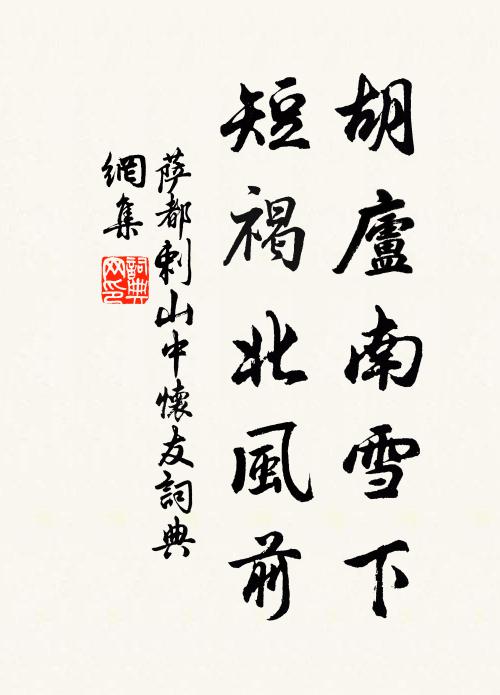 胡廬南雪下
短褐北風前
薩都剌山中懷友詞典
網集
詞典網印